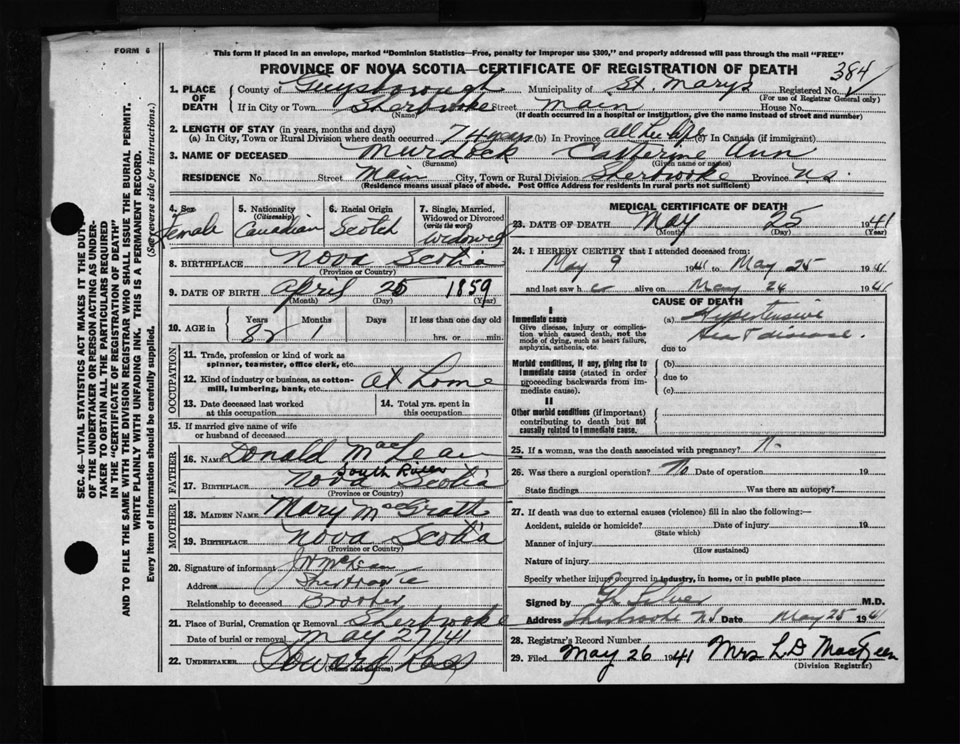 FORM 6
This form if placed in an envelope, marked "Dominion Statistics—Free, penalty for improper use $300," and properly addressed will pass through the mail "FREE"
PROVINCE OF NOVA SCOTIA—CERTIFICATE OF REGISTRATION OF DEATH
384
1. PLACE OF DEATH County of Guysborough Municipality of St. Marys Registered No.
(For use of Registrar General only)
If in City or Town Sherbrooke Street Main House No.
(Name) (If death occurred in a hospital or institution, give the name instead of street and number)
2. LENGTH OF STAY (in years, months and days)
(a) In City, Town or Rural Division where death occurred 74 years (b) In Province all her life (c) In Canada (if immigrant)
3. NAME OF DECEASED Murdock Catherine Ann
(Surname) (Given name or names)
RESIDENCE No. Street Main City, Town or Rural Division Sherbrooke Province N.S.
(Residence means usual place of abode. Post Office Address for residents in rural parts not sufficient)
4. Sex Female
5. Nationality (Citizenship) Canadian
6. Racial Origin Scotch
7. Single, Married, Widowed or Divorced (write the word) Widowed
8. BIRTHPLACE Nova Scotia
(Province or Country)
9. DATE OF BIRTH April 1859
(Month) (Day) (Year)
10. AGE in Years Months Days If less than one day old
82 1 hrs. or min.
OCCUPATION
11. Trade, profession or kind of work as spinner, teamster, office clerk, etc.
12. Kind of industry or business, as cotton-mill, lumbering, bank, etc. at home
13. Date deceased last worked at this occupation
14. Total yrs. spent in this occupation
15. If married give name of wife or husband of deceased
FATHER
16. NAME Donald MacLean
South River
17. BIRTHPLACE Nova Scotia
(Province or Country)
MOTHER
18. MAIDEN NAME Mary MacGrath
19. BIRTHPLACE Nova Scotia
(Province or Country)
20. Signature of informant McLean
Address
Relationship to deceased Brother
21. Place of Burial, Cremation or Removal Sherbrooke
Date of burial or removal May 27/41
22. UNDERTAKER Howard Ross
MEDICAL CERTIFICATE OF DEATH
23. DATE OF DEATH May 25 1941
(Month) (Day) (Year)
24. I HEREBY CERTIFY that I attended deceased from
May 9 1941 to May 25 1941
and last saw h alive on May 24 1941
CAUSE OF DEATH
I
Immediate cause (a) Hypertensive
Heart disease.
Give disease, injury or complication which caused death, not the mode of dying, such as heart failure, asphyxia, asthenia, etc.
due to
Morbid conditions, if any, giving rise to immediate cause (stated in order proceeding backwards from immediate cause).
(b)
due to
(c)
II
Other morbid conditions (if important) contributing to death but not causally related to immediate cause.
25. If a woman, was the death associated with pregnancy?
26. Was there a surgical operation? No Date of operation 19
State findings Was there an autopsy?
27. If death was due to external causes (violence) fill in also the following:—
Accident, suicide or homicide? Date of injury 19
(State which)
Manner of injury
(How sustained)
Nature of injury
Specify whether injury occurred in industry, in home, or in public place
Signed by M.D.
Address Sherbrooke NS Date May 25 1941
28. Registrar's Record Number
29. Filed May 26 1941 Mrs L D
(Division Registrar)
SEC. 46—VITAL STATISTICS ACT MAKES IT THE DUTY
OF THE UNDERTAKER OR PERSON ACTING AS UNDER-
TAKER TO OBTAIN ALL THE PARTICULARS REQUIRED
IN THE "CERTIFICATE OF REGISTRATION OF DEATH"
AND TO FILE THE SAME WITH THE DIVISION REGISTRAR WHO SHALL ISSUE THE BURIAL PERMIT.
WRITE PLAINLY WITH UNFADING INK. THIS IS A PERMANENT RECORD.
Every item of information should be carefully supplied. (See reverse side for instructions.)